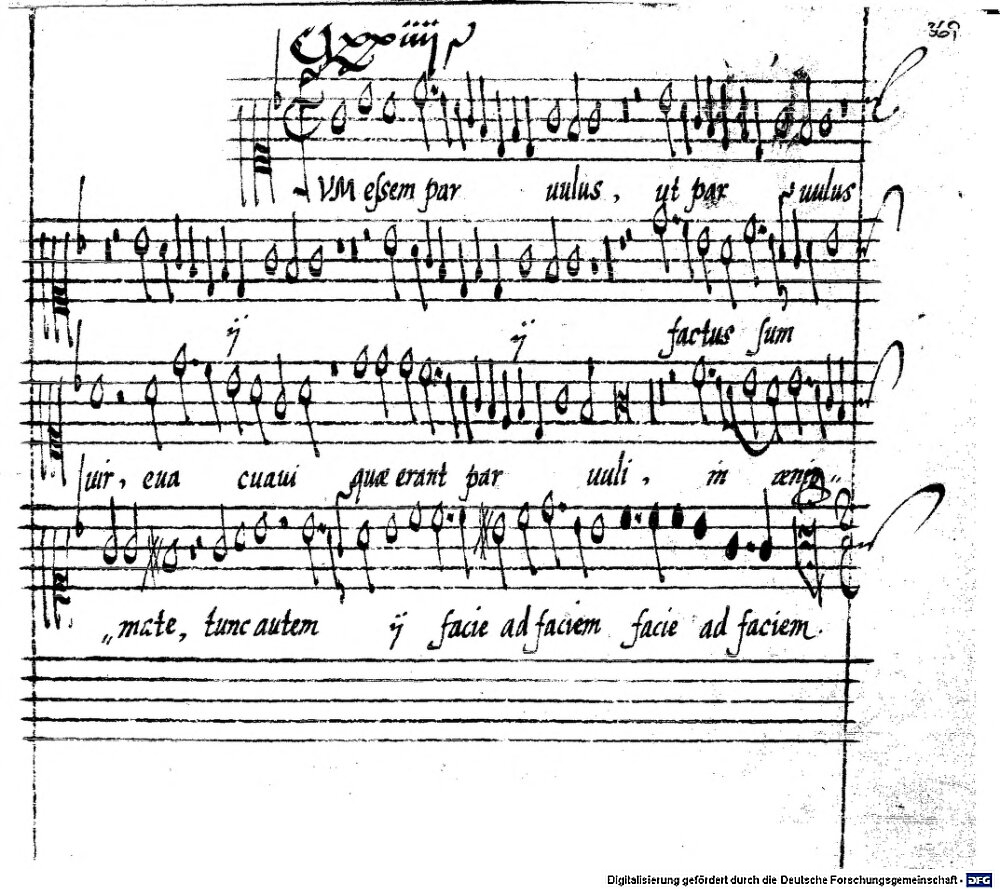 361
VM essem par uulus, ut par uulus
ij ij factus sum
uir, eua cuaui quæ erant par uuli, in ænig„
„mate, tunc autem ij facie ad faciem facie ad faciem.
Digitalisierung gefördert durch die Deutsche Forschungsgemeinschaft - DFG